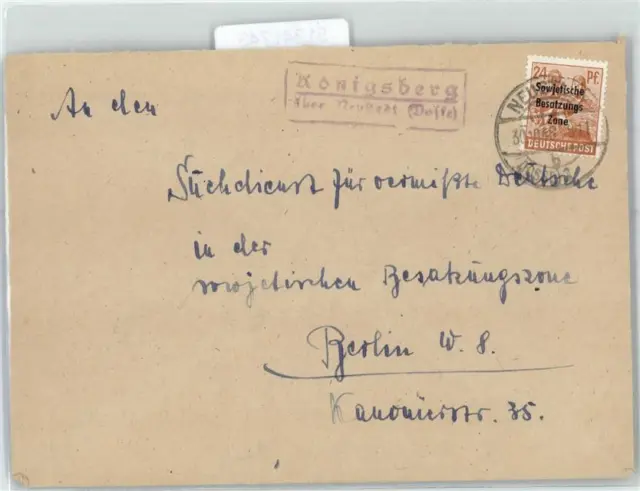 Königsberg
über Neustadt (Dosse)
24 Pf.
Sowjetische
Besatzungs
Zone
DEUTSCHE POST
An den
Suchdienst für vermißte Deutsche
in der
sowjetischen Besatzungszone
Berlin W. 8.
Kanonierstr. 35.